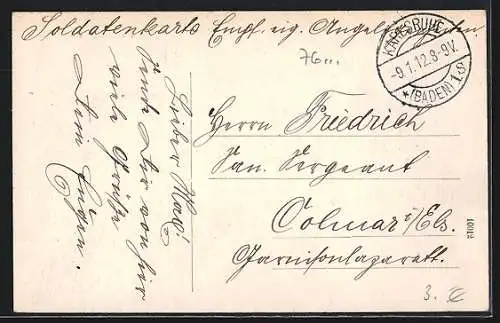 Soldatenkarte Empf. eig. Angelegenheiten.
76...
KARLSRUHE
-9.1.12.8-9V.
*(BADEN)1.g
Lieber Max!
Sende Dir von hier
viele Grüße
Dein Eugen.
Herrn Friedrich
San. Sergeant
Colmar i/Els.
Garnisonlazarett.
3.